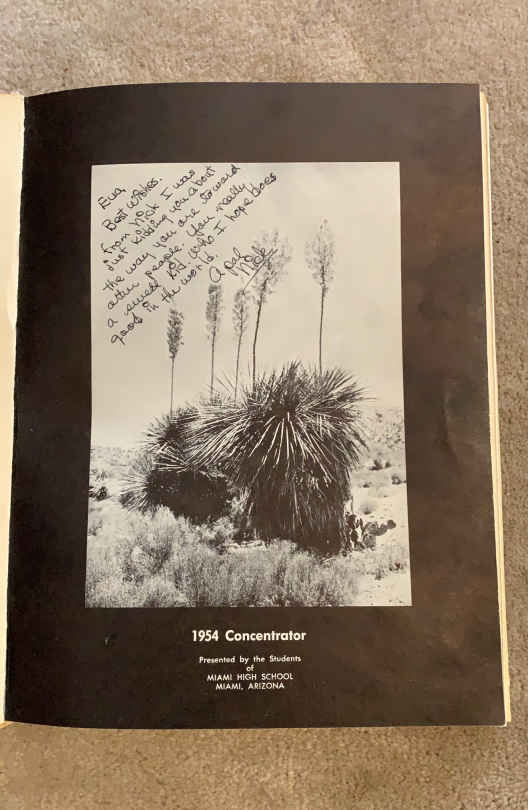 Eva,
Best Wishes.
from Nick I was
just kidding you about
the way you are toward
other people. You really
a sweet kid. Who I hope does
good in the world.
A pal
Nick
1954 Concentrator
Presented by the Students
of
MIAMI HIGH SCHOOL
MIAMI, ARIZONA